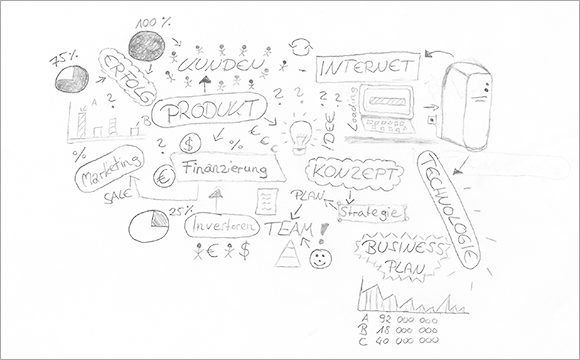 100 %
75 %
ERFOLG
KUNDEN
INTERNET
PRODUKT
? ? ? ? ? ? ?
A
B
€ € €
IDEE
Loading
%
$
%
Marketing
€
Finanzierung
KONZEPT
TECHNOLOGIE
SALE
PLAN
Strategie
25%
Investoren
TEAM!
€ $
BUSINESS
PLAN
A 92 000 000
B 18 000 000
C 40 000 000